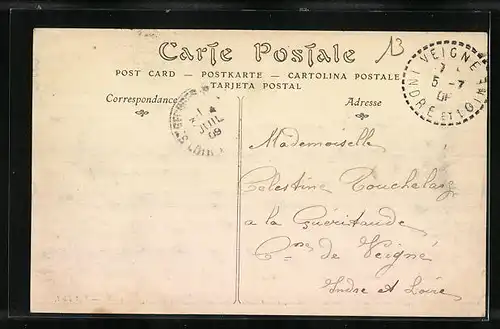 Carte Postale
13
POST CARD — POSTKARTE — CARTOLINA POSTALE
TARJETA POSTAL
Correspondance
Adresse
VEIGNÉ
5 -7
INDRE ET LOIRE
4
JUIL
09
Mademoiselle
Célestine
a la Guéritaude
Cne de Veigné
Indre et Loire